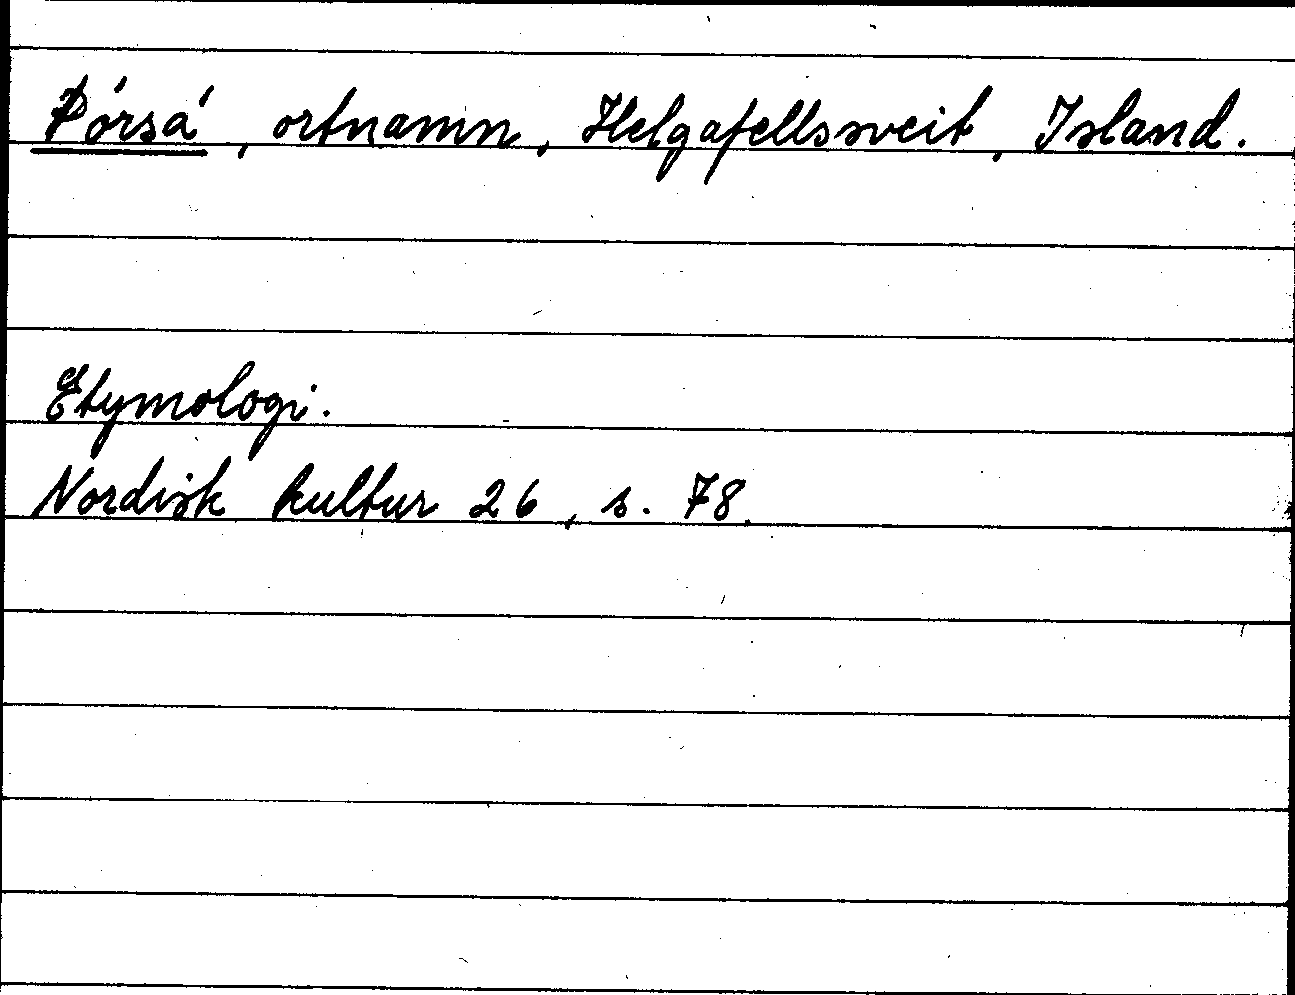 Þórsá, ortnamn, Helgafellssveit, Island.
Etymologi.
Nordisk kultur 26, s. 78.